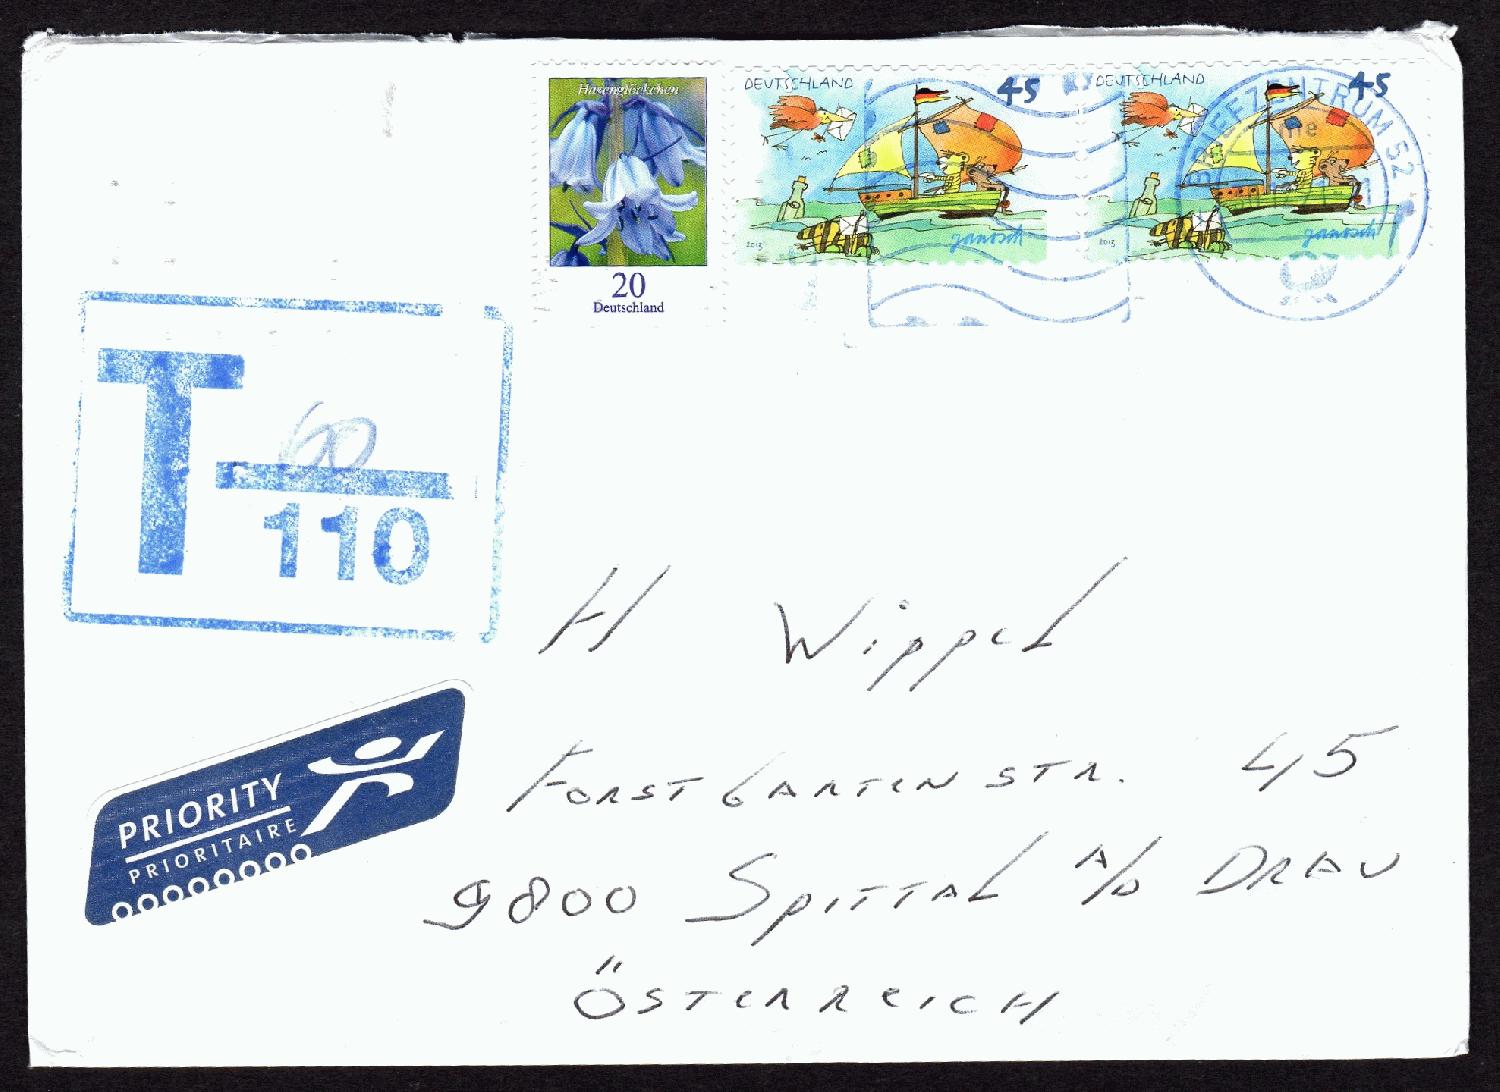 Hasenglöckchen
20
Deutschland
DEUTSCHLAND 45
2013 janosch
DEUTSCHLAND 45
2013 janosch
BRIEFZENTRUM 52
T 60
110
PRIORITY
PRIORITAIRE
H Wippel
FORSTGARTENSTR. 45
9800 SPITTAL A/D DRAU
ÖSTERREICH